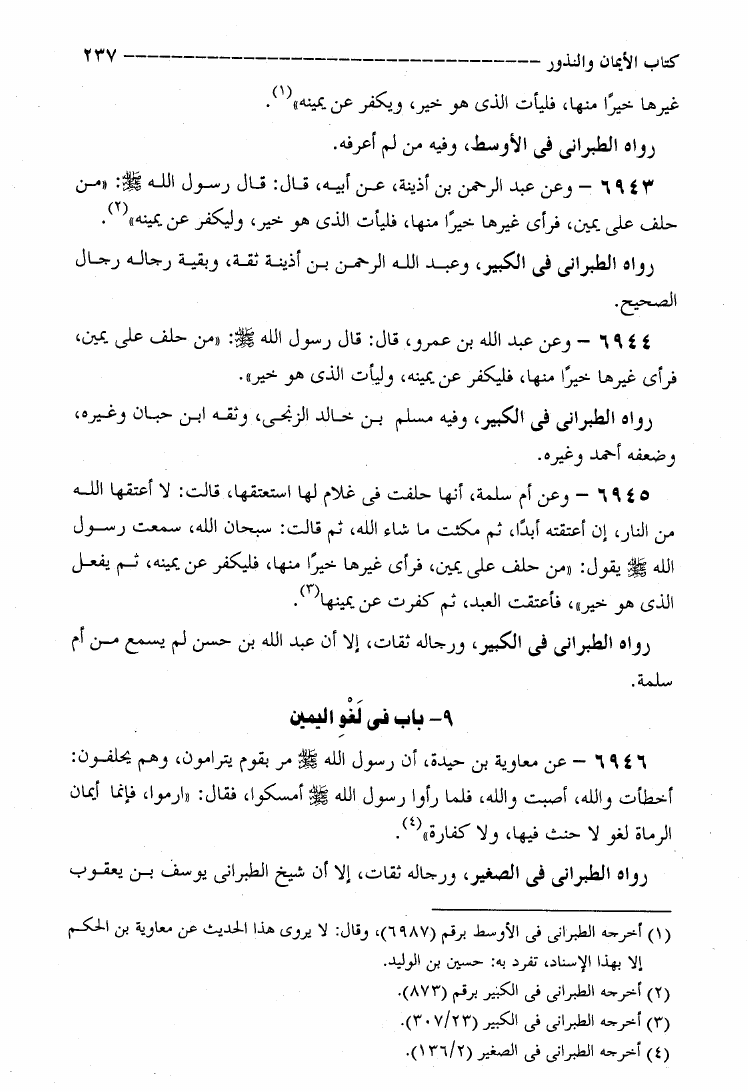 كتاب الأيمان والنذور ----------------------------------- ٢٣٧
غيرها خيرًا منها، فليأت الذى هو خير، ويكفر عن يمينه»(١).
رواه الطبرانى فى الأوسط، وفيه من لم أعرفه.
٦٩٤٣ – وعن عبد الرحمن بن أذينة، عن أبيه، قال: قال رسول الله ﷺ: «من
حلف على يمين، فرأى غيرها خيرًا منها، فليأت الذى هو خير، وليكفر عن يمينه»(٢).
رواه الطبرانى فى الكبير، وعبد الله الرحمن بن أذينة ثقة، وبقية رجاله رجال
الصحيح.
٦٩٤٤ – وعن عبد الله بن عمرو، قال: قال رسول الله ﷺ: «من حلف على يمين،
فرأى غيرها خيرًا منها، فليكفر عن يمينه، وليأت الذى هو خير».
رواه الطبرانى فى الكبير، وفيه مسلم بن خالد الزنجى، وثقه ابن حبان وغيره،
وضعفه أحمد وغيره.
٦٩٤٥ – وعن أم سلمة، أنها حلفت فى غلام لها استعتقها، قالت: لا أعتقها الله
من النار، إن أعتقته أبدًا، ثم مكثت ما شاء الله، ثم قالت: سبحان الله، سمعت رسول
الله ﷺ يقول: «من حلف على يمين، فرأى غيرها خيرًا منها، فليكفر عن يمينه، ثم يفعل
الذى هو خير»، فأعتقت العبد، ثم كفرت عن يمينها(٣).
رواه الطبرانى فى الكبير، ورجاله ثقات، إلا أن عبد الله بن حسن لم يسمع من أم
سلمة.
٩– باب فى لَغْوِ اليمين
٦٩٤٦ – عن معاوية بن حيدة، أن رسول الله ﷺ مر بقوم يترامون، وهم يحلفون:
أخطأت والله، أصبت والله، فلما رأوا رسول الله ﷺ أمسكوا، فقال: «ارموا، فإنما أيمان
الرماة لغو لا حنث فيها، ولا كفارة»(٤).
رواه الطبرانى فى الصغير، ورجاله ثقات، إلا أن شيخ الطبرانى يوسف بن يعقوب
(١) أخرجه الطبرانى فى الأوسط برقم (٦٩٨٧)، وقال: لا يروى هذا الحديث عن معاوية بن الحكم
إلا بهذا الإسناد، تفرد به: حسين بن الوليد.
(٢) أخرجه الطبرانى فى الكبير برقم (٨٧٣).
(٣) أخرجه الطبرانى فى الكبير (٣٠٧/٢٣).
(٤) أخرجه الطبرانى فى الصغير (١٣٦/٢).